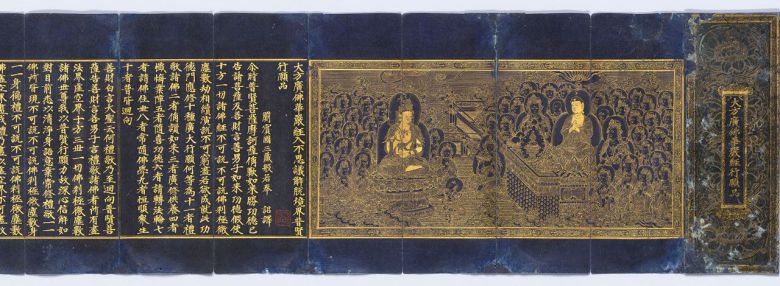 大方廣佛華嚴經行願品
大方廣佛華嚴經入不思議解脫境界普賢
行願品
罽賓國三藏般若奉 詔譯
尒時普賢菩薩摩訶薩稱歎如來勝功德已
告諸菩薩及善財言善男子如來功德假使
十方一切諸佛經不可說不可說佛剎極微
塵數劫相續演說不可窮盡若欲成就此功
德門應修十種廣大行願何等為十一者禮
敬諸佛二者稱讚如來三者廣修供養四者
懺悔業障五者隨喜功德六者請轉法輪七
者請佛住世八者常隨佛學九者恒順眾生
十者普皆迴向
善財白言大聖云何禮敬乃至迴向普賢菩
薩告善財言善男子言禮敬諸佛者所有盡
法界虛空界十方三世一切佛剎極微塵數
諸佛世尊我以普賢行願力故深心信解如
對目前悉以清淨身語意業常修禮敬一一
佛所皆現不可說不可說佛剎極微塵數身
一一身遍禮不可說不可說佛剎極微塵數
佛虛空界盡我禮乃盡以虛空界不可盡故